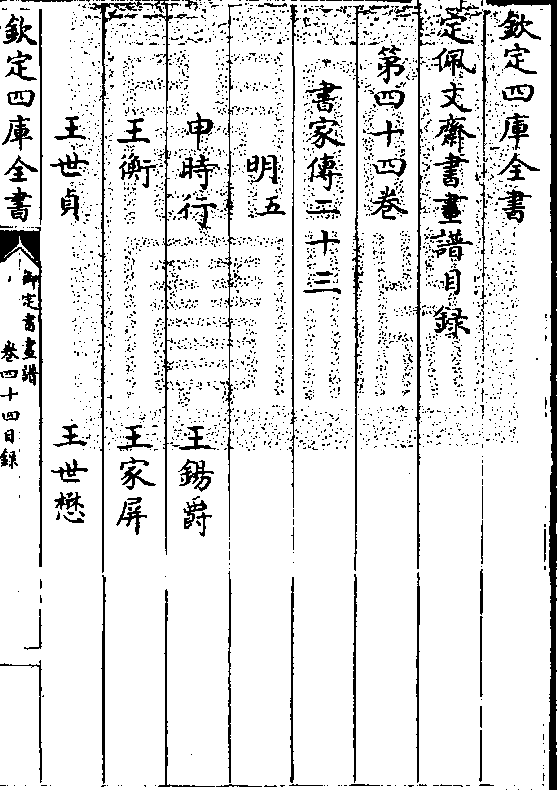 欽定四庫全書
定佩文齋書畫譜目録
第四十四巻
書家傳二十三
明五
申時行 王錫爵
王衡 王家屏
王世貞 王世懋
欽定四庫全書
御定書畫譜
巻四十四目録